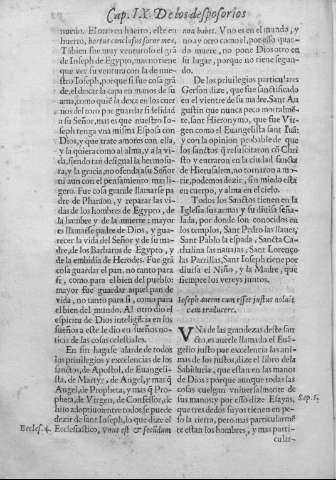 Cap. IX. De los desposorios
huerto. El otro en huerto, este en
huerto, hortus conclusus soror mea,
Tãbien fue muy venturoso el grã
de Ioseph de Egypto, mas no tiene
que ver su ventura con la de nue-
stro Ioseph, porque si fue cosa grã
de, el dexar la capa en manos de su
ama, como quiẽ la dexa en los cuer
nos del toro por guardar fidelidad
a su Señor, mas es que nuestro Io-
seph tenga vna misma Esposa con
Dios, y que trate amores con ella,
y la quiera como al alma, y a la vi-
da, siendo tan desigual la hermosu-
ra, y la gracia, no ofenda a su Señor
ni aun con el pensamiento mas li-
gero. Fue cosa grande llamarse pa
dre de Pharaon, y reparar las vi-
das de los hombres de Egypto, de
la hambre y de la muerte: mayor
es llamarse padre de Dios, y gua-
recer la vida del Señor y de su ma-
dre, de los Barbaros de Egypto, y
de la embidia de Herodes. Fue grã
cosa guardar el pan, no tanto para
si, como para el bien del pueblo:
mayor fue guardar aquel pan de
vida, no tanto para si, como para
el bien del mundo. Al otro dio el
espiritu de Dios inteligẽcia en los
sueños a este le dio en sueños noti-
cia de las cosas celestiales.
En fin hagase alarde de todos
los priuilegios y excelencias de los
sanctos, de Apostol, de Euangeli-
sta, de Martyr, de Angel, y mas q̃
Angel, de Propheta, y mas q̃ Pro-
pheta, de Virgen, de Confessor, de
hijo adoptiuo entre todos se puede
dezir de sant Ioseph, lo que dize el
Eccles. 4. Ecclesiastico, vnus est & secundum
non habet. Vno es en el mundo, y
no ay otro como el, por esso quan-
do muere, no pone Dios otro en
su lugar, porque no tiene segun-
do.
De los priuilegios particulares
Gerson dize, que fue sanctificado
en el vientre de su madre. Sant Au
gustin que nunca peco mortalmẽ-
te, sant Hieronymo, que fue Vir-
gen como el Euangelista sant Iuã:
y con la opinion probable de que
los sanctos q̃ resuscitaron cõ Chri
sto y entraron en la ciudad sancta
de Hierusalem, no tornaron a mo-
rir, podemos dezir, sin miedo esta
en cuerpo, y alma en el cielo.
Todos los Sanctos tienen en la
Iglesia sus armas y su diuisa seña-
lada, por donde son conocidos en
los templos, Sant Pedro las llaues,
Sant Pablo la espada, Sancta Ca-
thalina las nauajas, Sant Lorenço
las Parrillas, Sant Ioseph tiene por
diuisa el Niño, y la Madre, que
siempre los vereys juntos.
Ioseph autem cum esset iustus nolui t
eam traducere.
VNa de las grandezas deste san
cto, es auerle llamado el Euã-
gelio justo por excelencia: las ani-
mas de los justos, dize el libro dela
Sabiduria, que estan en las manos
de Dios: porque aunque todas las
cosas cuelguen vniuersalmente de
sus manos: y por esso dize Esayas, Cap. 5.
que tres dedos suyos tienen en pe-
so la tierra, pero mas particularmẽ
te estan los hombres, y mas parti-
cular-